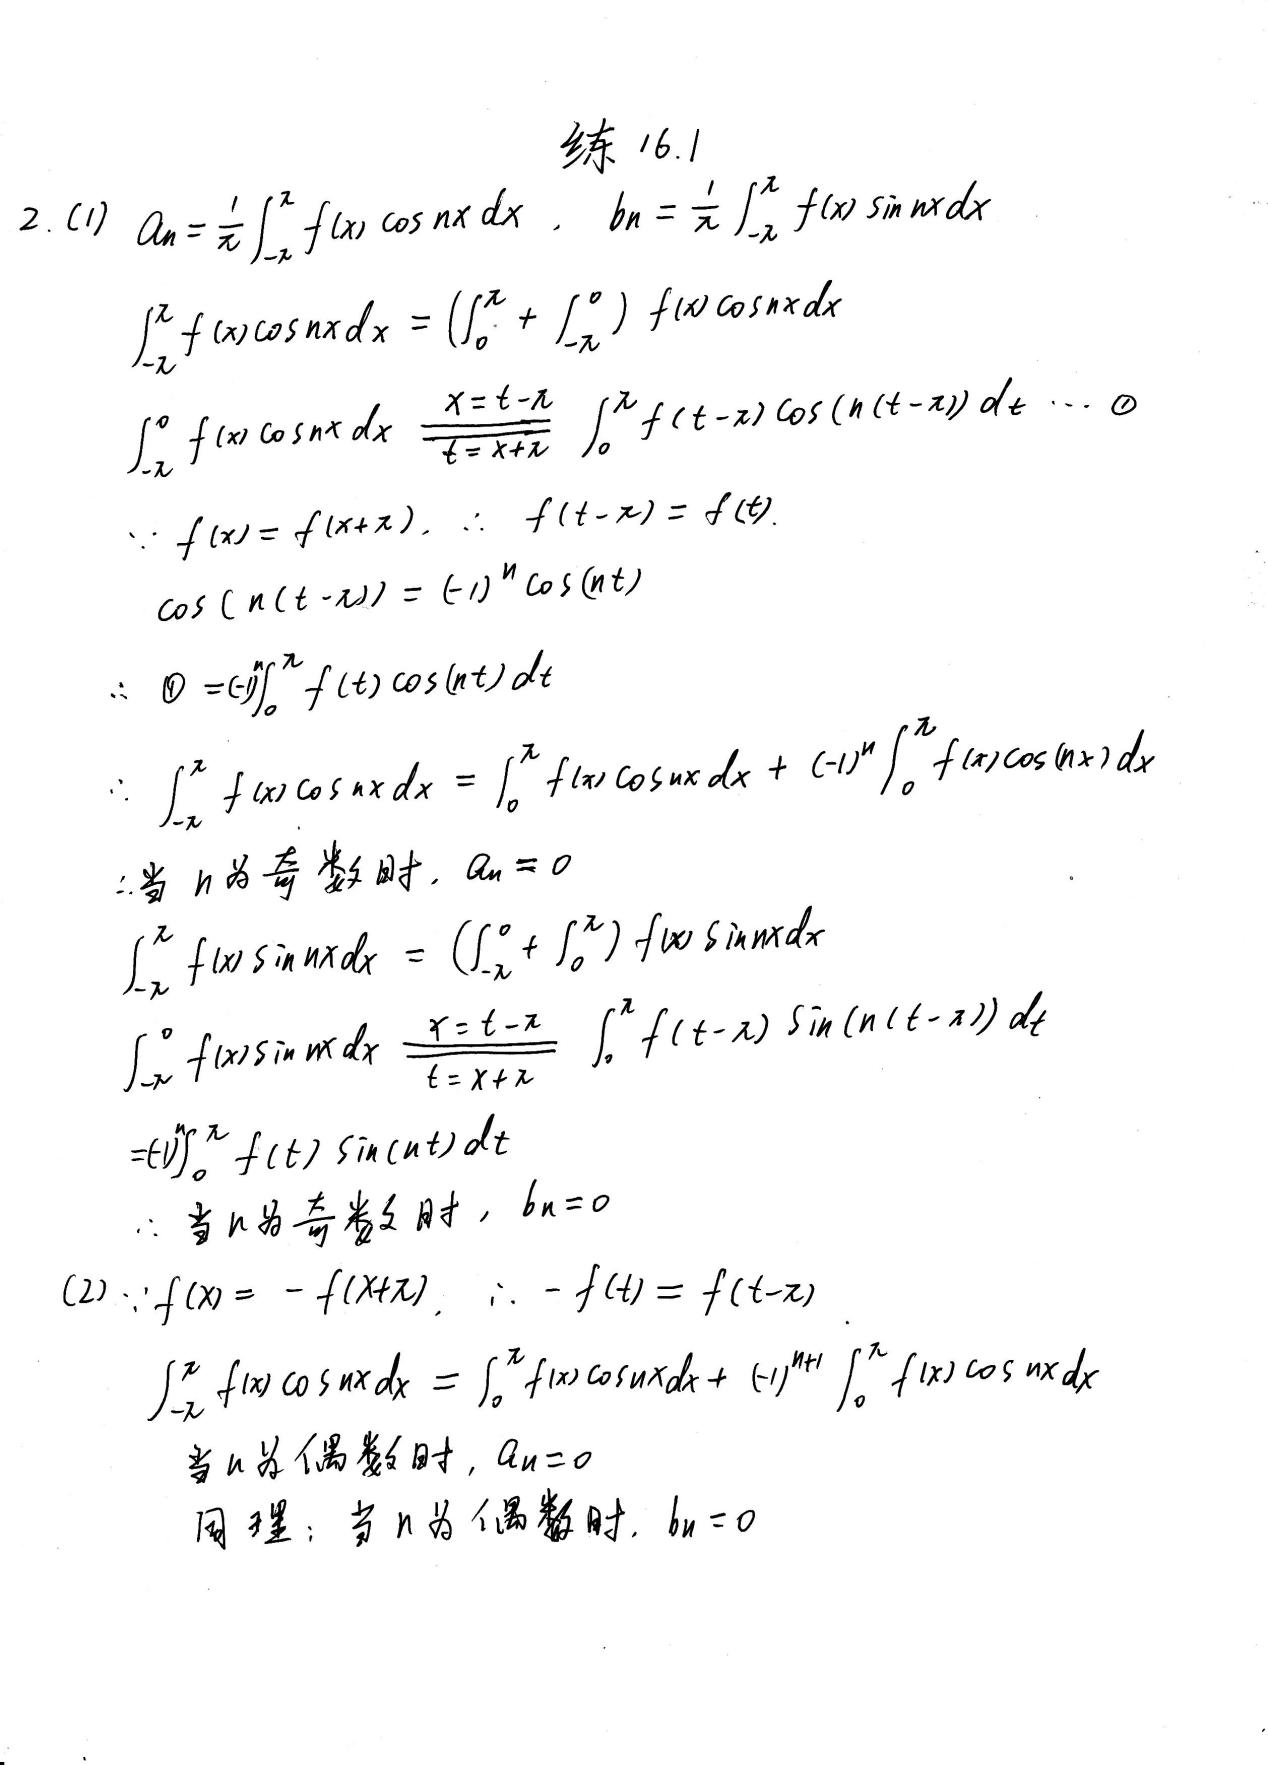 练 16.1
2.(1) aₙ = 1/π ∫_{-π}^{π} f(x) cos nx dx , bₙ = 1/π ∫_{-π}^{π} f(x) sin nx dx
∫_{-π}^{π} f(x) cos nx dx = (∫_0^π + ∫_{-π}^0) f(x) cos nx dx
∫_{-π}^0 f(x) cos nx dx ══(x=t-π / t=x+π)══ ∫_0^π f(t-π) cos(n(t-π)) dt ... ①
∵ f(x) = f(x+π), ∴ f(t-π) = f(t).
cos(n(t-π)) = (-1)^n cos(nt)
∴ ① = (-1)^n ∫_0^π f(t) cos(nt) dt
∴ ∫_{-π}^{π} f(x) cos nx dx = ∫_0^π f(x) cos nx dx + (-1)^n ∫_0^π f(x) cos(nx) dx
∴ 当 n 为奇数时, aₙ = 0
∫_{-π}^{π} f(x) sin nx dx = (∫_{-π}^0 + ∫_0^π) f(x) sin nx dx
∫_{-π}^0 f(x) sin nx dx ══(x=t-π / t=x+π)══ ∫_0^π f(t-π) sin(n(t-π)) dt
= (-1)^n ∫_0^π f(t) sin(nt) dt
∴ 当 n 为奇数时, bₙ = 0
(2) ∵ f(x) = -f(x+π), ∴ -f(t) = f(t-π)
∫_{-π}^{π} f(x) cos nx dx = ∫_0^π f(x) cos nx dx + (-1)^{n+1} ∫_0^π f(x) cos nx dx
当 n 为偶数时, aₙ = 0
同理: 当 n 为偶数时, bₙ = 0